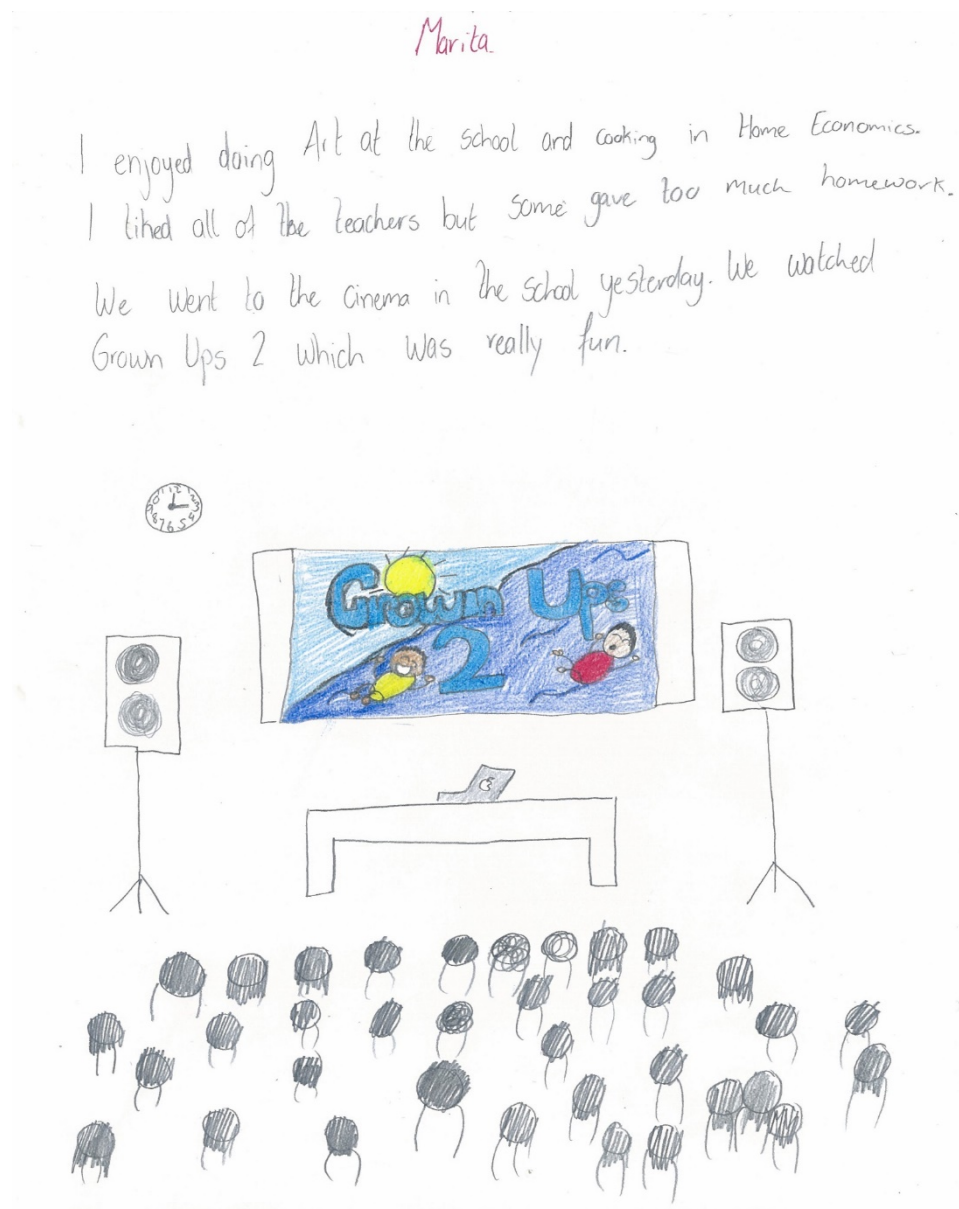 Marita
I enjoyed doing Art at the school and cooking in Home Economics.
I liked all of the teachers but some gave too much homework.
We went to the cinema in the school yesterday. We watched
Grown Ups 2 which was really fun.
Grown Ups
2